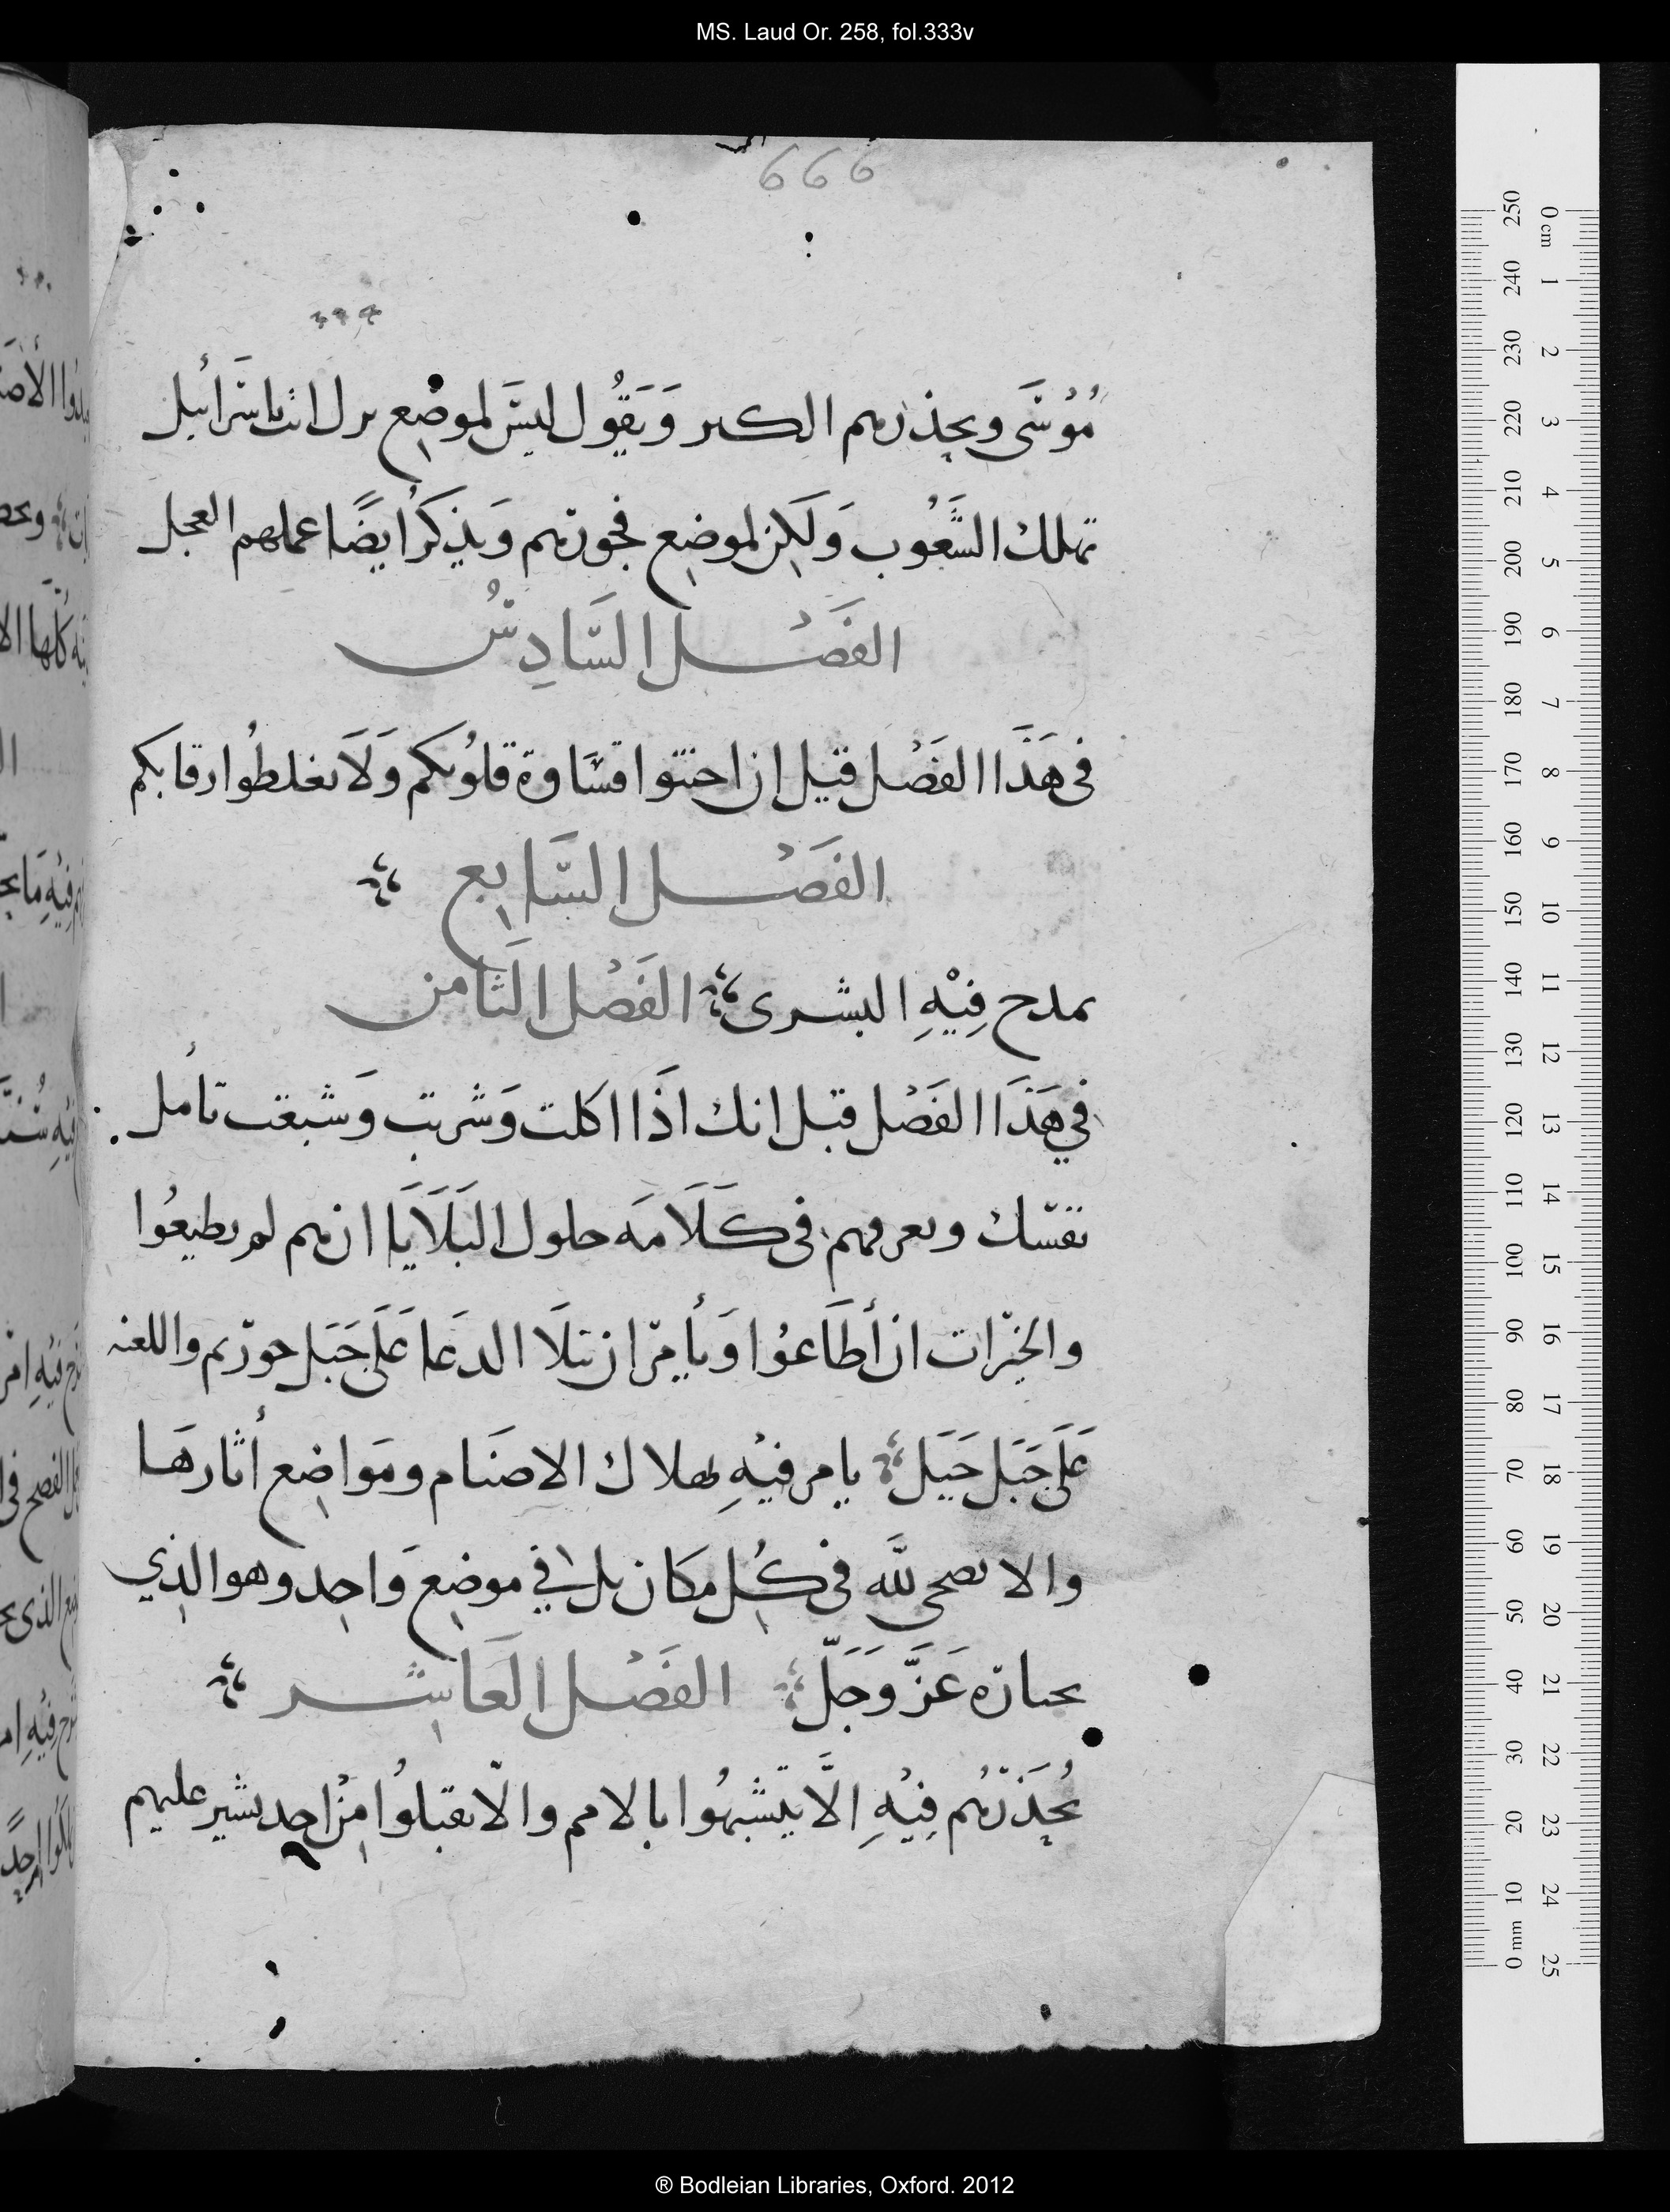 MS. Laud Or. 258, fol.333v
666
مُوُسَى ويحذرهم الكبر وَيَقُول ليسَ لموضع برك انت ياسرائيل
تهلك الشَّعُوب وَلَكِن لموضع فجورهم وَيذكرُ ايضًا عملهم العجل
الفَصْل السَّادِسُ
فى هَذَا الفَصْل قيل ان اختنوا قسَاوة قلوُبكم وَلَا تغلطُوا رقابكم
الفَصْل السَّابع
يمدح فِيْهِ البشرى الفَصْل الثَامن
في هَذَا الفَصْل قيل انك اذَا اكلت وَشربت وَشبعت تأمل
نفسّك ويعرفهم فى كَلَامَه حلول البَلَايَا ان هم لم يطيعُوا
والخيرات ان أطَاعُوا وَيأمر ان يتلَا الدعَا عَلَى جَبَل جوزيم واللعنه
عَلَى جَبَل جَيبَل يامر فيْهِ بهلاك الاصنَام ومَواضع أثارهَا
والا يضحى لله فى كُل مكان بل في موضع وَاحِد وهو الذِي
يختاره عَزَّ وَجَلّ الفَصْل العَاشر
يُحذرُهم فِيْهِ الَّا يتَشبهُوا بالامم والّا يقبلُوا مِنْ احد يشير عليهم
0 cm 1 2 3 4 5 6 7 8 9 10 11 12 13 14 15 16 17 18 19 20 21 22 23 24 25
250 240 230 220 210 200 190 180 170 160 150 140 130 120 110 100 90 80 70 60 50 40 30 20 10 0 mm
® Bodleian Libraries, Oxford. 2012